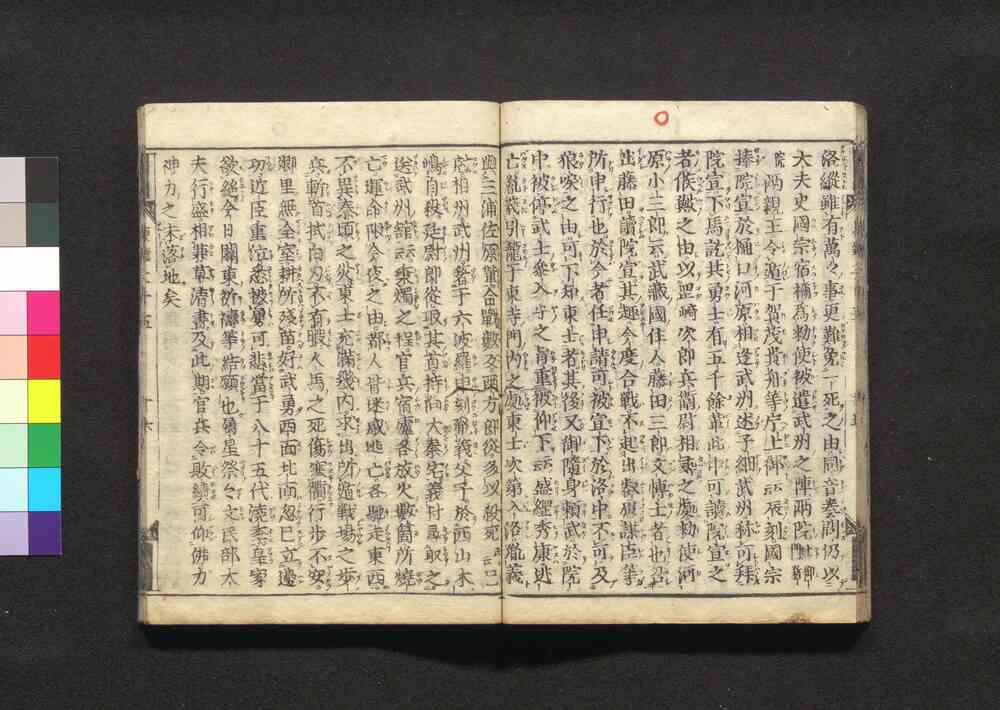 洛縦雖有萬々事更難免一死之由同音奏聞仍以
大夫史國宗宿祢為勅使被遣武州之陣兩院
兩親王令遁于賀茂貴船等片土御云辰刻國宗
捧院宣於樋口河原相逢武州述子細武州稱可拜
院宣下馬訖共勇士有五千餘輩此中可讀院宣之
者候歟之由以岡崎次郎兵衛尉相尋之處勅使河
原小三郎云武藏國住人藤田三郎文博士者也召
出藤田讀院宣其趣今度合戰不起出叡慮謀臣等
所申行也於今者任申請可被宣下於洛中不可及
狼唳之由可下知東士者其後又御隨身頼武於院
中被停武士參入畢之旨重被仰下云盛綱秀康逃
亡胤義引籠于東寺門内之處東士次第入洛胤義
與三浦佐原輩合戰數反兩方郎從多以殺死云已
尅相州武州着于六波羅申刻胤義父子於西山木
嶋自殺廷尉郎從取其首持向太秦宅義村尋取之
送武州舘云秉燭之程官兵宿廬各放火數箇所燒
亡運命限今夜之由都人皆迷惑逃亡各馳走東西
不異秦項之災東士充滿畿内求出所遁戰場之歩
兵斬首拭白刃不有暇人馬之死傷塞衢行歩不安
郷里無全室耕所無殘苗好武勇西面北面忽亡立邊
功近臣重位悉被虜可悲當于八十五代澆季皇家
欲絶今日關東祈禱等結願也屬星祭々文民部大
夫行盛相兼草清書及此期官兵令敗績可仰佛力
神力之未落地矣